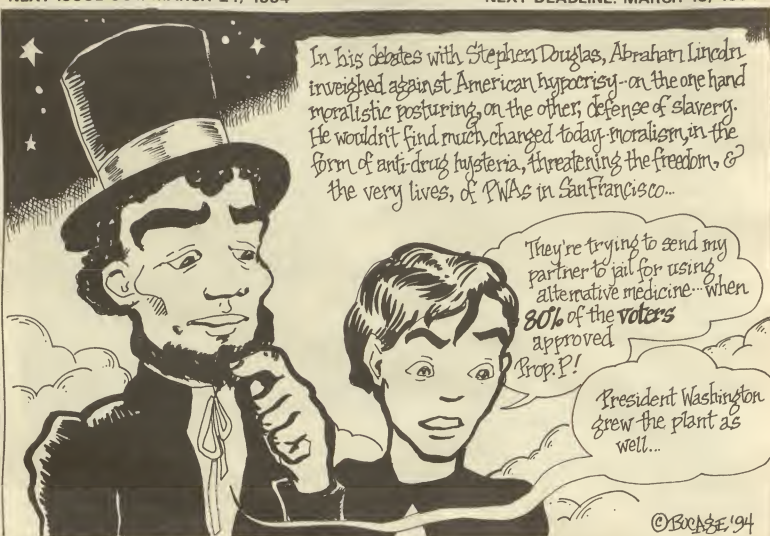 In his debates with Stephen Douglas, Abraham Lincoln
inveighed against American hypocrisy--on the one hand
moralistic posturing, on the other, defense of slavery.
He wouldn't find much changed today-moralism, in the
form of anti-drug hysteria, threatening the freedom, &
the very lives, of PWAs in San Francisco...
They're trying to send my
partner to jail for using
alternative medicine...when
80% of the voters
approved
Prop. P!
President Washington
grew the plant as
well...
© BOCAGE '94